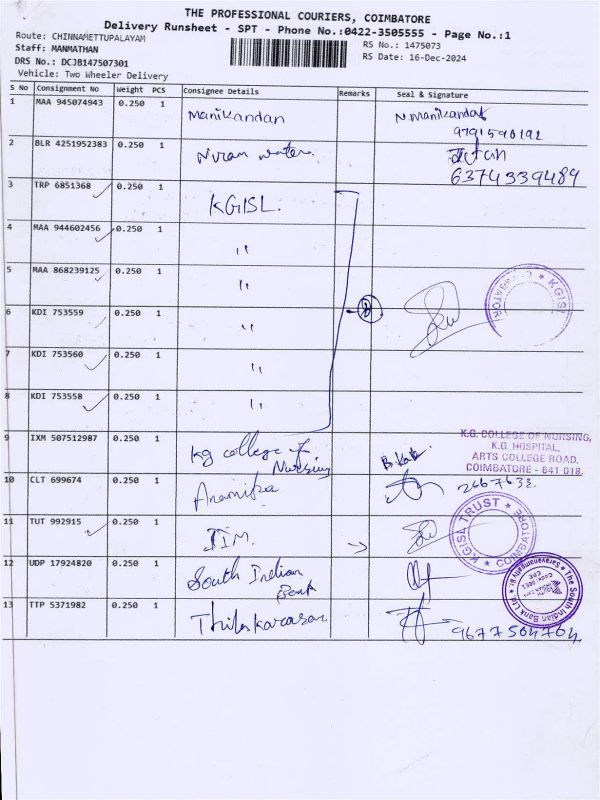 THE PROFESSIONAL COURIERS, COIMBATORE
Delivery Runsheet - SPT - Phone No.:0422-3505555 - Page No.:1
Route: CHINNAMETTUPALAYAM
RS No.: 1475073
Staff: MANMATHAN
RS Date: 16-Dec-2024
DRS No.: DCJB147507301
Vehicle: Two Wheeler Delivery
S No Consignment No Weight PCS Consignee Details Remarks Seal & Signature
1 MAA 945074943 0.250 1 Manikandan N.Manikandan
9791590192
2 BLR 4251952383 0.250 1 water
6374339489
3 TRP 6851368 0.250 1 KGISL.
4 MAA 944602456 0.250 1 "
5 MAA 868239125 0.250 1 "
6 KDI 753559 0.250 1 " 8
KGISL ★ COIMBATORE
7 KDI 753560 0.250 1 "
8 KDI 753558 0.250 1 "
9 IXM 507512987 0.250 1 Kg college of
Nursing
K.G. COLLEGE OF NURSING,
K.G. HOSPITAL,
ARTS COLLEGE ROAD,
COIMBATORE - 641 018.
10 CLT 699674 0.250 1 Anamika
11 TUT 992915 0.250 1 IIM.
★ KGISL TRUST ★ COIMBATORE
12 UDP 17924820 0.250 1 South Indian
Bank
★ The South Indian Bank Ltd. ★ Saravanampatti Br.
13 TTP 5371982 0.250 1 Thilakarasan
9677504704